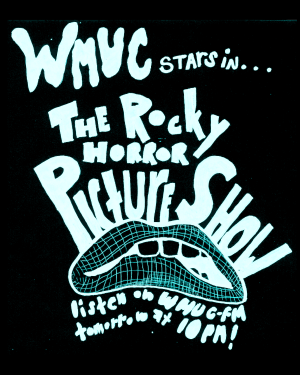 WMUC STARS IN...
THE ROCKY
HORROR
PICTURE SHOW
listen on WMUC-FM
tomorrow at 10PM!